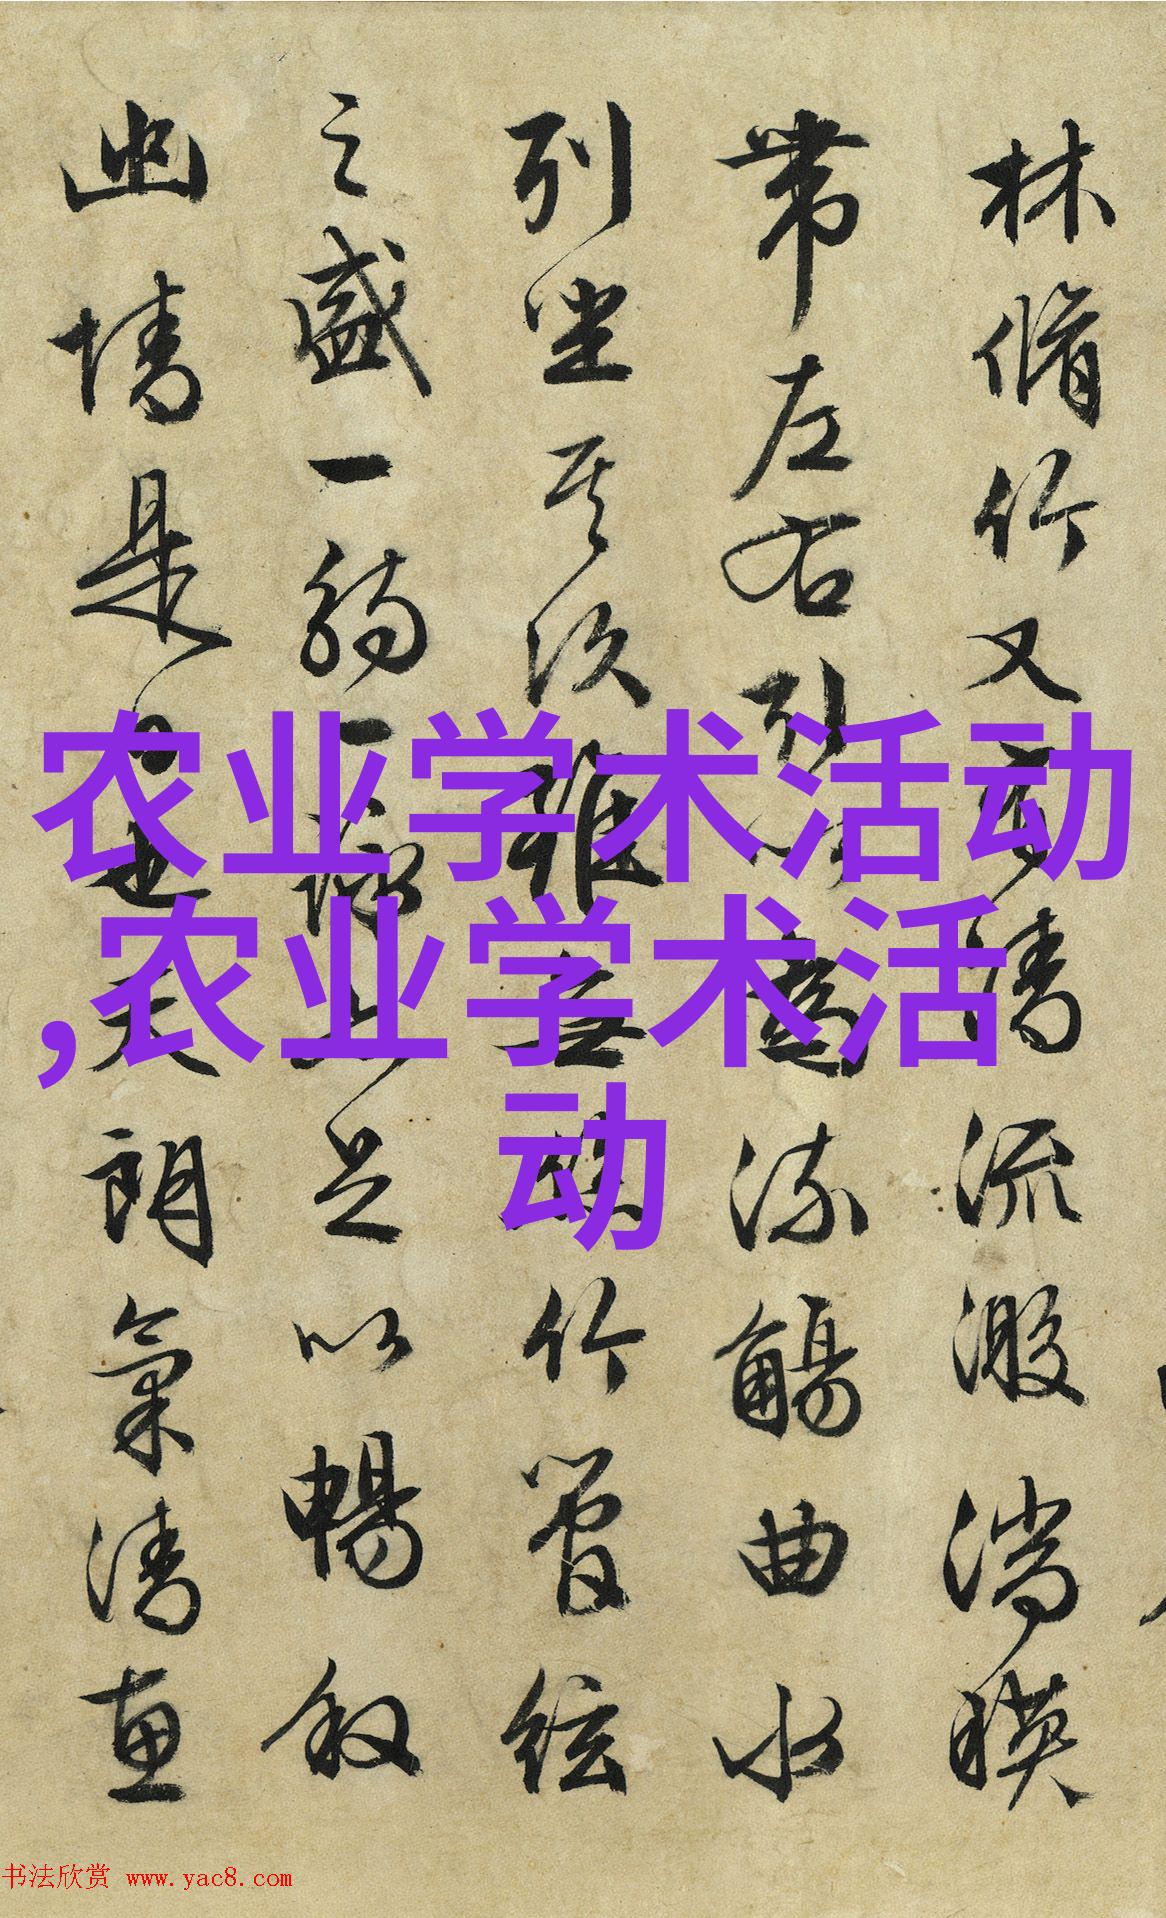 林脩竹又有清流激湍暎
帶左右引以為流觴曲水
列坐其次雖無絲竹管絃
之盛一觴一詠亦足以暢叙
幽情是日也天朗氣清惠
农业学术活动
,农业学术活
动
书法欣赏 www.yac8.com